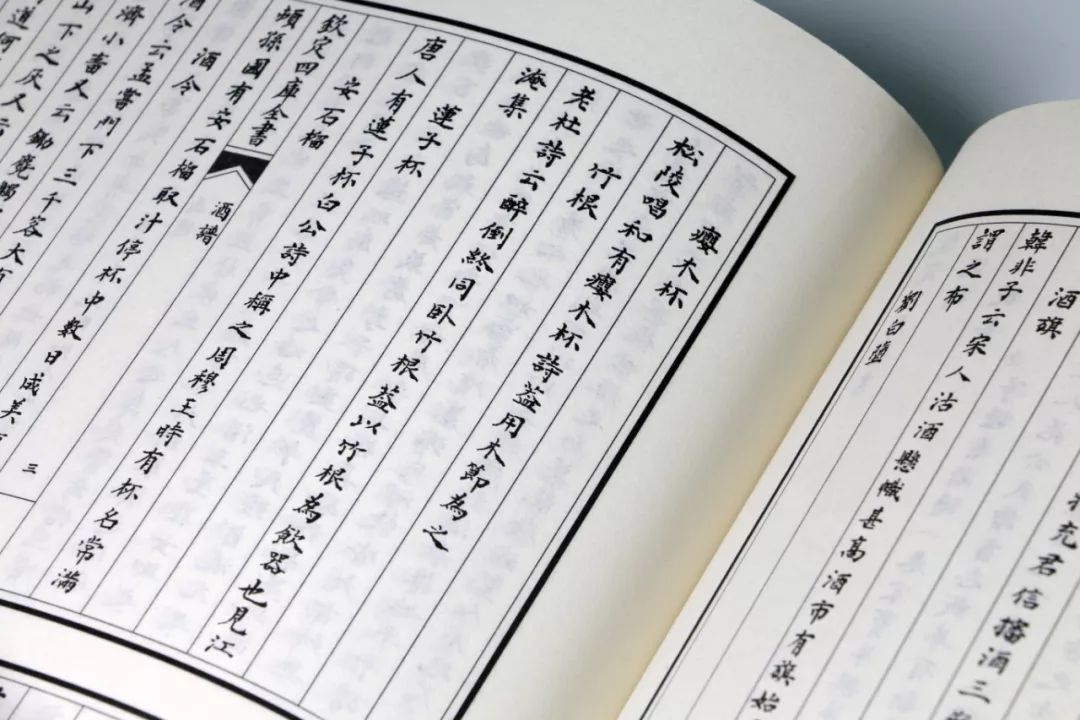 充君信播酒三
酒旗
韓非子云宋人沽酒懸幟甚高酒市有旗始
謂之布
劉白墮
癭木杯
松陵唱和有癭木杯詩葢用木節為之
竹根
老杜詩云醉倒終同卧竹根葢以竹根為飲器也見江
淹集
蓮子杯
唐人有蓮子杯白公詩中稱之周穆王時有杯名常滿
安石榴
欽定四庫全書
酒譜
三
頓孫國有安石榴取汁停杯中數日成美
酒令
酒令云孟嘗門下三千客大有
濟小畜又云鋤麑觸
山下之灰又云
道何